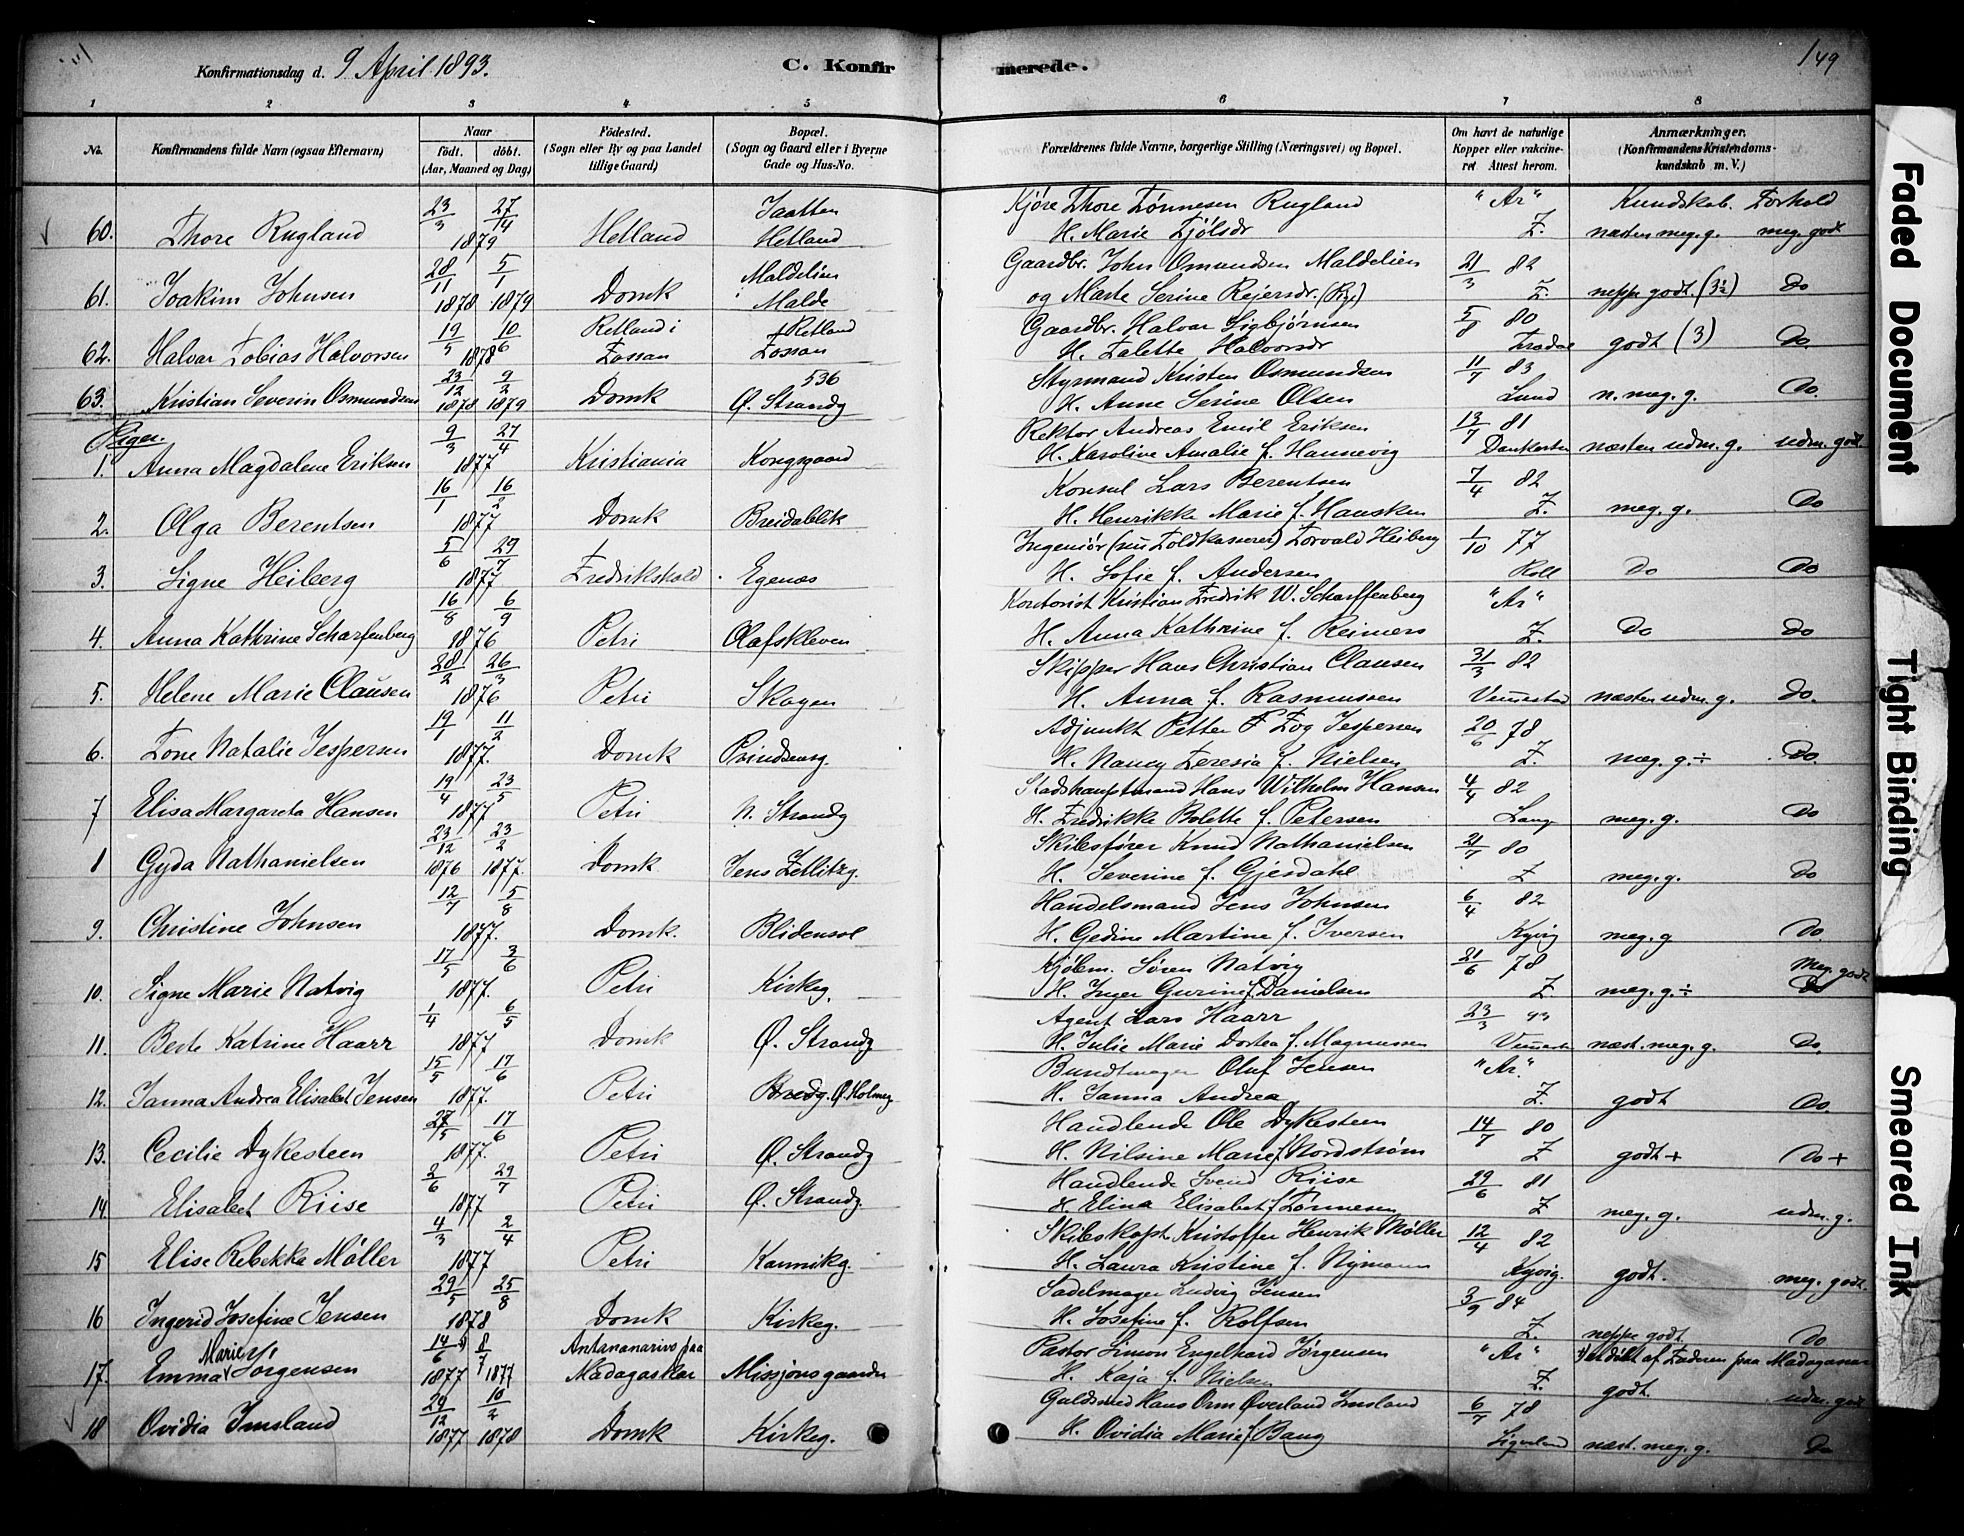 Konfirmationsdag d. 9 April 1893. C. Konfirmerede. 149
1 2 3 4 5 6 7 8
No. Konfirmandens fulde Navn (ogsaa Efternavn) Naar födt. döbt. (Aar, Maaned og Dag) Födested. (Sogn eller By og paa Landet tillige Gaard) Bopæl. (Sogn og Gaard eller i Byerne Gade og Hus-No. Forældrenes fulde Navne, borgerlige Stilling (Næringsvei) og Bopæl. Om havt de naturlige Kopper eller vakcineret Attest herom. Anmærkninger. (Konfirmandens Kristendomskundskab m. V.)
Kundskab. Forhold
60. Thore Rugland 23/3 27/14 1879 Hetland Jaatten Hetland Kjøre Thore Tønnesen Rugland "Ar"
H. Marie Tjølsdr Z. næsten meg. g. meg. godt
61. Joakim Johnsen 28/11 1878 5/1 1879 Domk Maldelien Malde Gaardbr. John Osmundsen Maldelien 21/3 82
og Marte Serine Rejersdr. Z. neppe godt. (3½) Do
62. Halvar Tobias Halvorsen 19/5 10/6 1878 Retland i Fossan Retland Fossan Gaardbr. Halvar Sigbjørnsen 5/8 80
H. Talette Halvorsdr godt (3) Do.
63. Kristian Severin Osmundsen 23/12 1878 9/2 1879 Domk 536 Ø. Strandg Styrmand Kristen Osmundsen 11/7 83
H. Anne Serine Olsen Lund n. meg. g. Do.
Piger.
1. Anna Magdalene Eriksen 9/3 27/4 1877 Kristiania Kongsgaard Rektor Andreas Emil Eriksen 13/7 81
H. Karoline Amalie f. Hannevig Dankertsen næsten udm. g. udm. godt
2. Olga Berentsen 16/1 16/2 1877 Domk Breidablik Konsul Lars Berentsen 7/4 82
H. Henrikke Marie f. Hansken Z. meg. g. Do
3. Signe Heiberg 5/6 29/7 1877 Fredrikshald Egenæs Ingeniør (nu Toldkasserer) Torvald Heiberg 1/10 77
H. Sofie f. Andersen Roll Do Do
4. Anna Kathrine Scharfenberg 16/8 6/9 1876 Petri Olafskleven Kontorist Kristian Fredrik W. Scharffenberg "Ar"
H. Anna Kathrine f. Reimers Z. Do Do
5. Helene Marie Clausen 28/2 26/3 1876 Petri Skagen Skipper Hans Christian Clausen 31/3 82
H. Anna f. Rasmussen næsten udm. g. Do.
6. Tone Natalie Jespersen 19/1 11/2 1877. Domk Prindsensg. Adjunkt Petter F Fog Jespersen 20/6 78
H. Nancy Teresia f. Nielsen Z. meg. g. ÷ Do.
7 Elisa Margareta Hansen 19/4 23/5 1877 Petri N. Strandg Stadshauptmand Hans Wilhelm Hansen 4/4 82
H. Fredrikke Bolette f. Petersen Lange meg. g. Do
8 Gyda Nathanielsen 23/12 1876 23/2 1877. Domk Jens Zetlitzg. Skibsfører Knud Nathanielsen 21/7 80
H. Severine f. Gjesdahl Z meg. g. Do
9. Christine Johnsen 12/7 5/8 1877. Domk. Blidensol Handelsmand Jens Johnsen 6/4 82
H. Gedine Martine f. Iversen Kyvig meg. g Do
10. Signe Marie Natvig 17/5 3/6 1877. Petri Kirkeg. Kjøbm. Søren Natvig 21/6 78
H. Inger Gurine f. Danielsen Z. meg. g. ÷ Meg. godt
11. Berte Katrine Haarr 1/4 6/5 1877 Domk Ø. Strandg Agent Lars Haarr 23/3
H. Julie Marie Dortea f. Magnussen næst. meg. g. Do.
12. Janna Andrea Elisabet Jensen 15/5 17/6 1877. Petri Bredg. Ø. Holmeg Bundtmager Oluf Jensen "Ar."
H. Janna Andrea Z. godt Do
13. Cecilie Dykesteen 27/5 17/6 1877. Petri Ø. Strandg Handlende Ole Dykesteen 14/7 80
H. Nilsine Marie f Nordstrøm Z godt + Do +
14. Elisabet Riise 2/6 29/7 1877 Petri Ø. Strandg. Handlende Svend Riise 29/6 81
H. Elina Elisabet f Tønnesen Z meg. g. udm. g.
15 Elise Rebekka Møller 4/3 2/4 1877 Petri Kannikg. Skibskapt Kristoffer Henrik Møller 12/4 82
H. Laura Kristine f. Nymann Kyvig. godt. meg. godt.
16 Ingerid Josefine Jensen 29/5 25/8 1878 Domk Kirkeg. Sadelmager Ludvig Jensen 3/9 84
H. Josefine f. Rolfsen Z. neppe godt. Do
17. Emma Marie Jørgensen 14/6 1877 8/7 1877 Antananarivo paa Madagaskar Missjonsgaarden Pastor Simon Engelhard Jørgensen "Ar" døbt af Faderen paa Madagascar
H. Kaja f. Nielsen Z. godt. udm. godt
18 Ovidia Imsland 29/12 1877 10/2 1878 Domk Kirkeg. Guldsmed Hans Orm Øverland Imsland 6/7 78
H. Ovidia Marie f Bang næst. meg. g. Do
Faded Document
Tight Binding
Smeared Ink